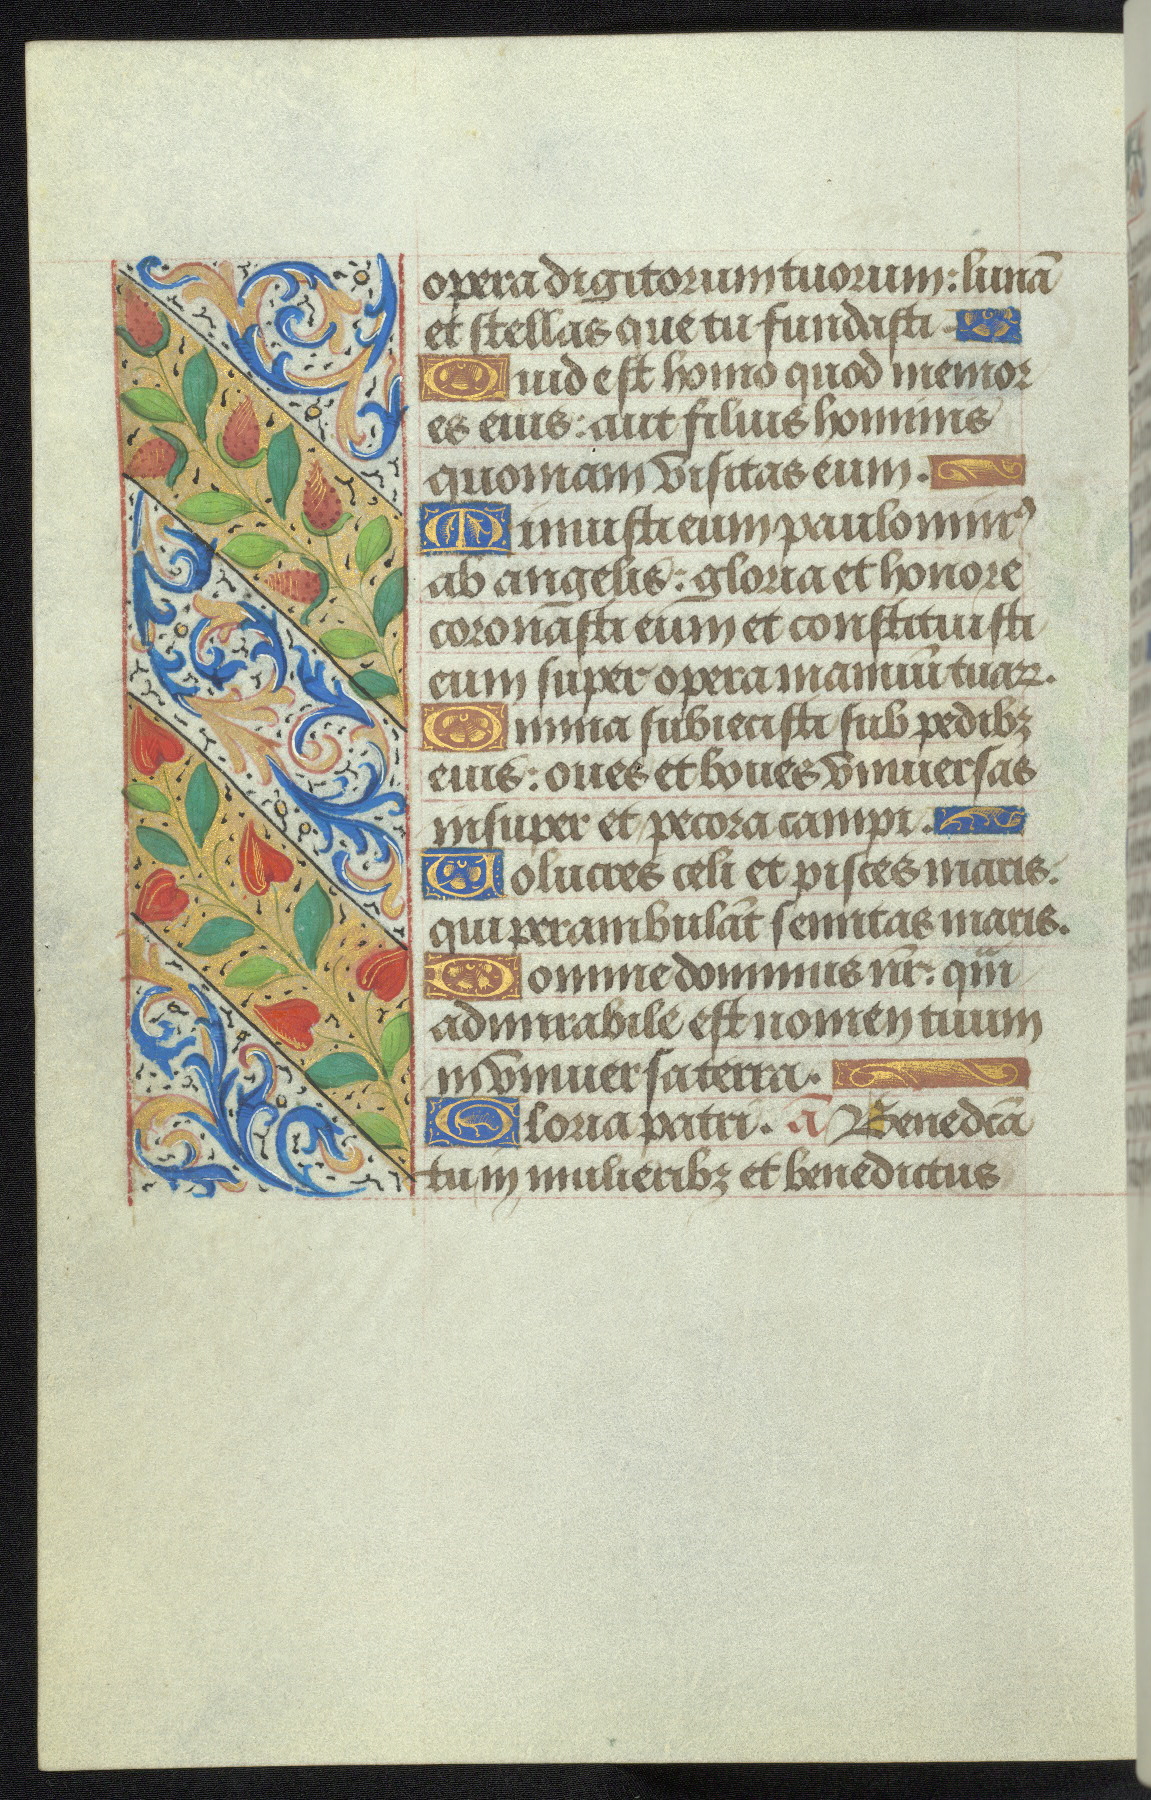 opera digitorum tuorum: lunā
et stellas que tu fundasti.
Quid est homo quod memor
es eius: aut filius hominis
quoniam visitas eum.
Minuisti eum paulo minꝰ
ab angelis: gloria et honore
coronasti eum et constituisti
eum super opera manuū tuaꝝ.
Omnia subiecisti sub pedibꝫ
eius: oues et boues vniuersas
insuper et pecora campi.
Volucres celi et pisces maris:
qui perambulāt semitas maris.
Domine dominus nr̄: qm̄
admirabile est nomen tuum
in vniuersa terra.
Gloria patri. a Benedicta
tu in mulieribꝫ et benedictus